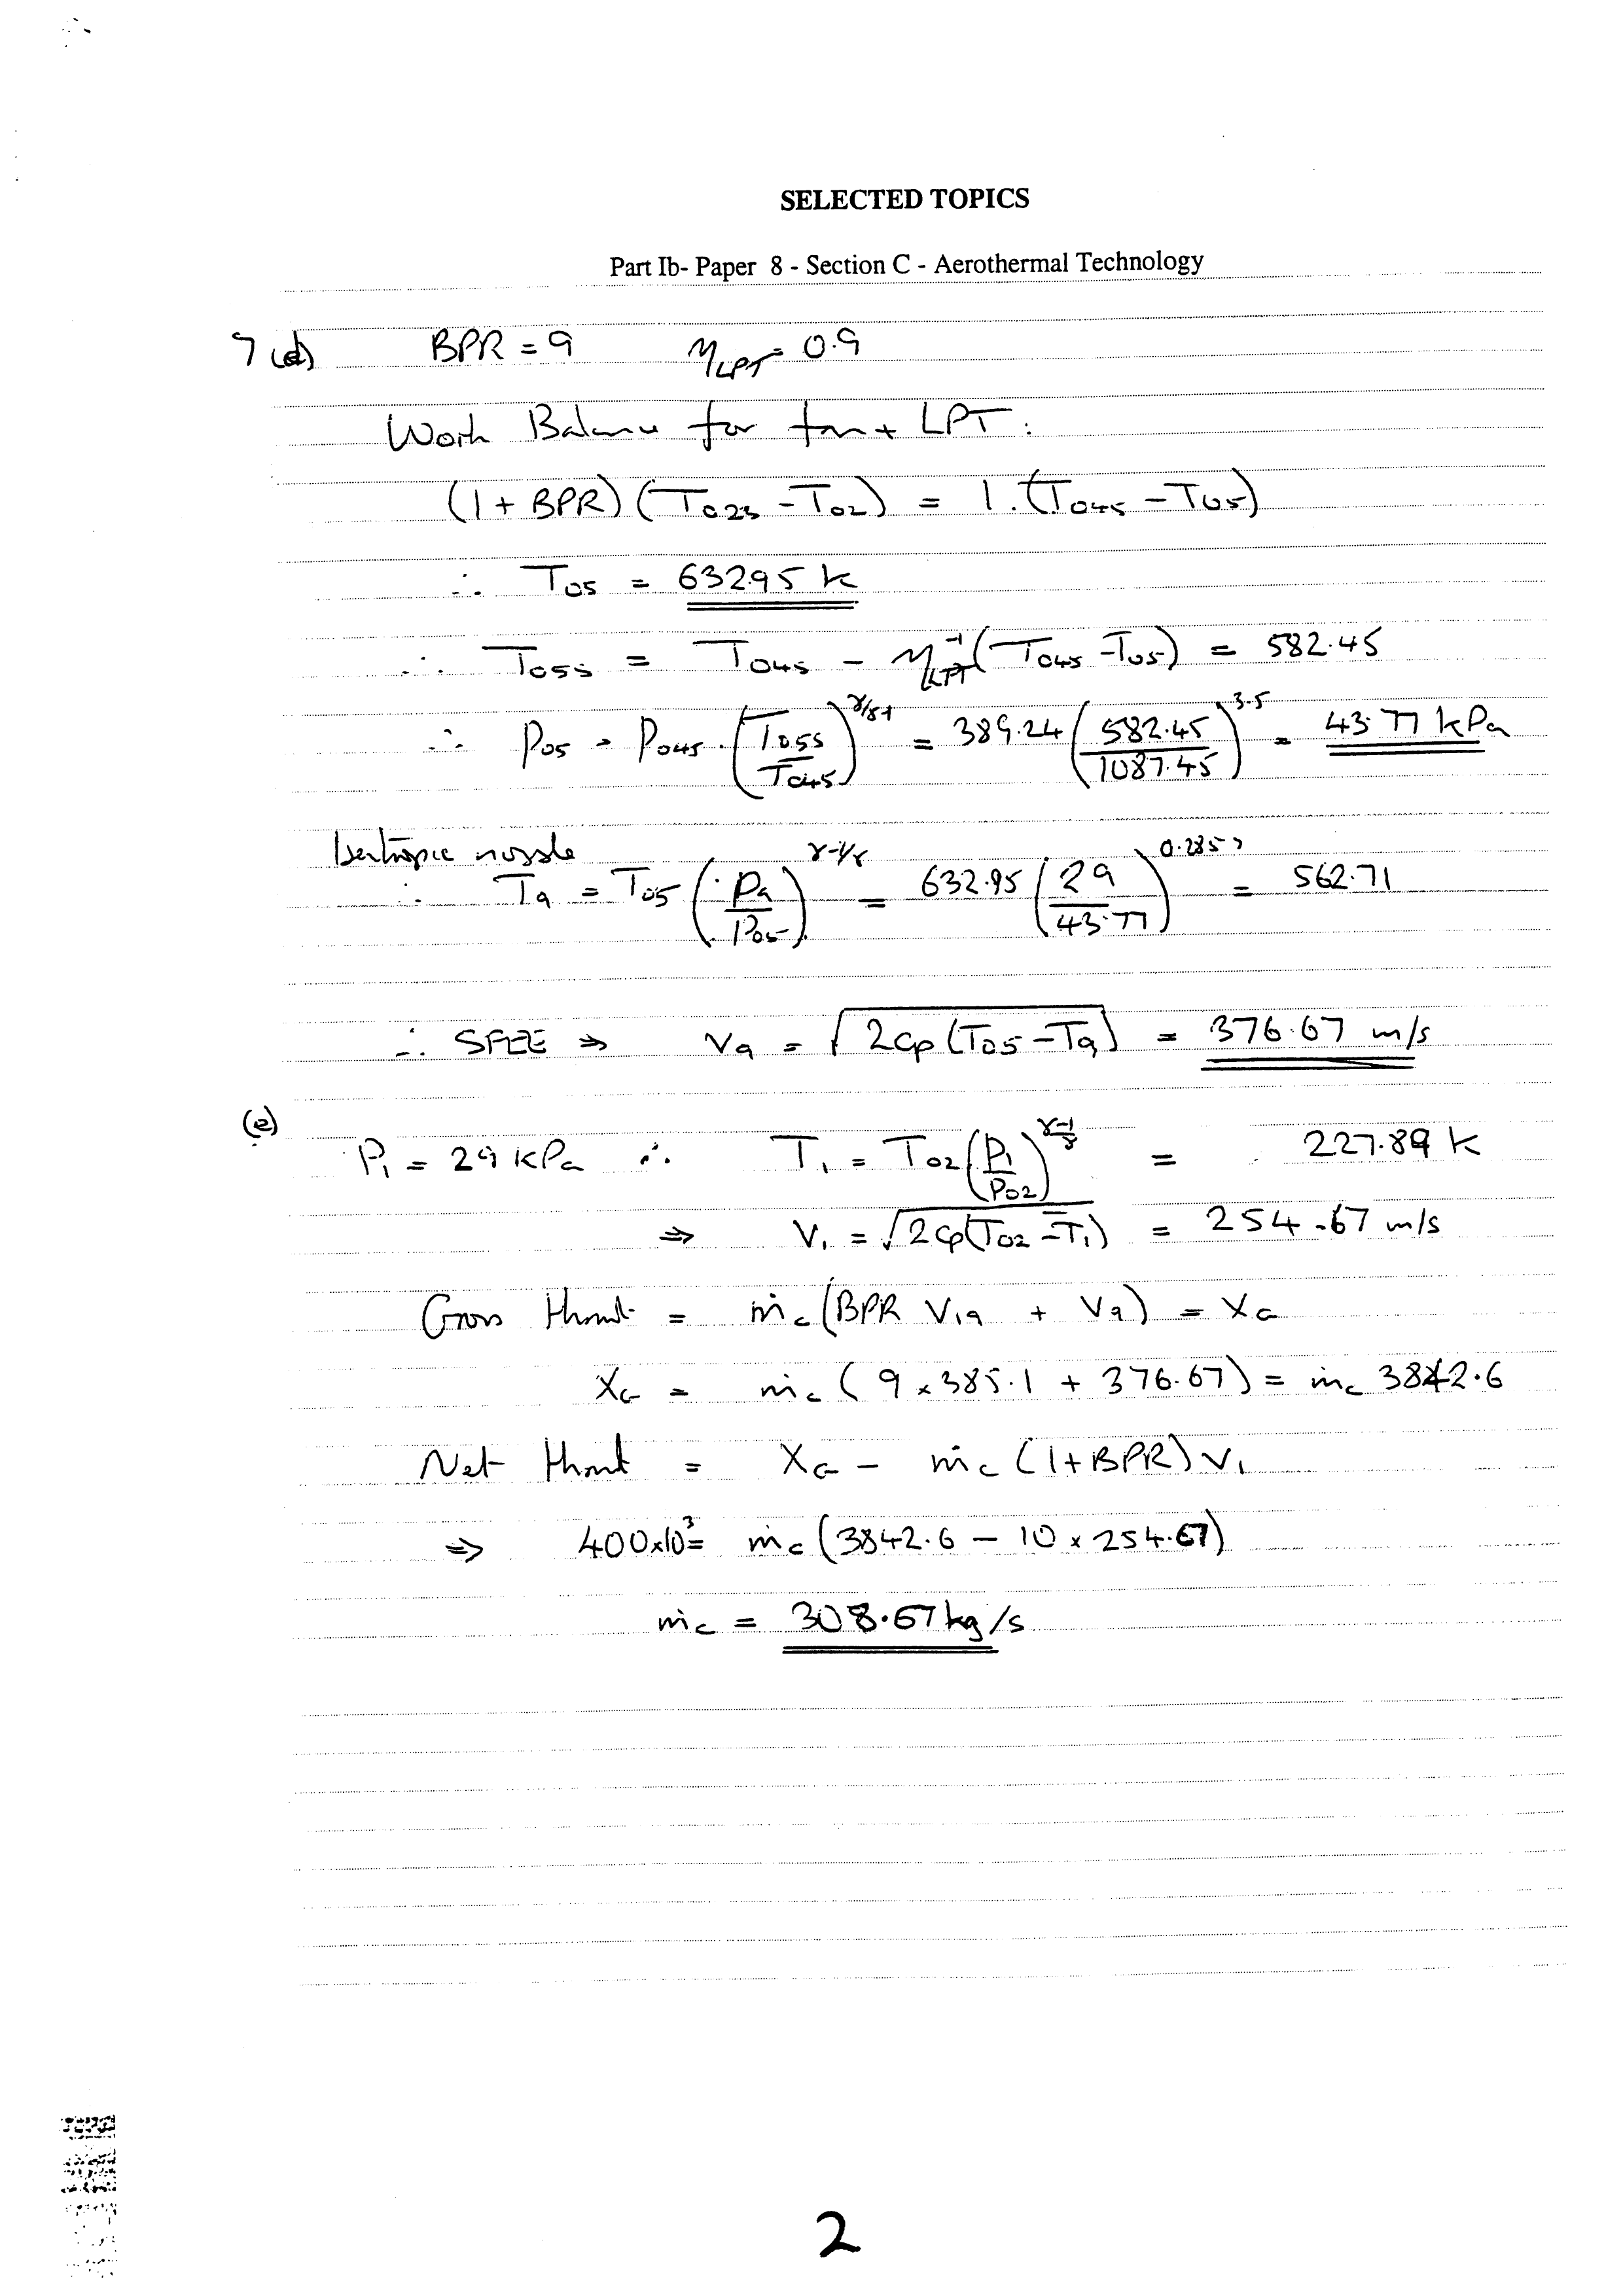 SELECTED TOPICS
Part Ib- Paper 8 - Section C - Aerothermal Technology
7 (d) BPR = 9 η_LPT = 0.9
Work Balance for fan + LPT:
(1 + BPR) (T_023 - T_02) = 1. (T_045 - T_05)
∴ T_05 = 632.95 K
∴ T_05s = T_045 - η_LPT^-1 (T_045 - T_05) = 582.45
∴ P_05 = P_045 . (T_05s / T_045)^γ/γ-1 = 389.24 (582.45 / 1087.45)^3.5 = 43.77 kPa
Isentropic nozzle
∴ T_9 = T_05 (P_a / P_05)^γ-1/γ = 632.95 (29 / 43.77)^0.2857 = 562.71
∴ SFEE ⇒ V_9 = √2cp (T_05 - T_9) = 376.67 m/s
(e)
P_1 = 29 kPa ∴ T_1 = T_02 (P_1 / P_02)^γ-1/γ = 227.89 K
⇒ V_1 = √2cp(T_02 - T_1) = 254.67 m/s
Gross thrust = ṁ_c (BPR V_19 + V_9) = X_G
X_G = ṁ_c (9 × 385.1 + 376.67) = ṁ_c 3842.6
Net thrust = X_G - ṁ_c (1+BPR) V_1
⇒ 400×10^3 = ṁ_c (3842.6 - 10 × 254.67)
ṁ_c = 308.67 kg/s
2